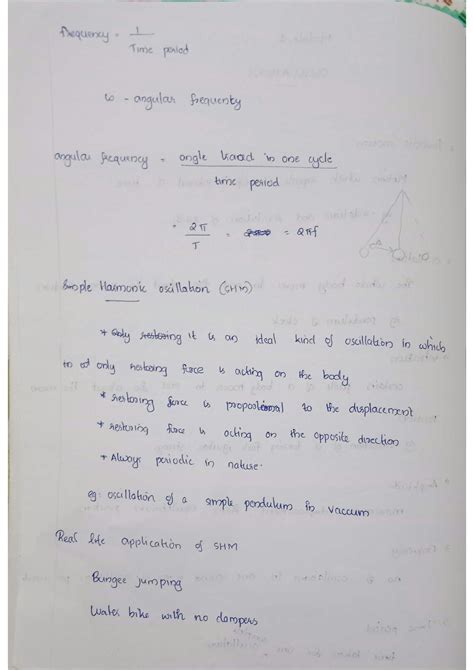 frequency = 1
Time period
ω - angular frequenty
angular frequency = angle traced in one cycle
time period
= 2π = = 2πf
T
Simple Harmonic oscillation (SHM)
* Only restoring it is an ideal kind of oscillation in which
to only restoring force is acting on the body.
* restoring force is proportional to the displacement
* restoring force is acting on the opposite direction
* Always periodic in nature.
eg: oscillation of a simple pendulum in vaccum
Real life application of SHM
Bungee jumping
Water bike with no dampers